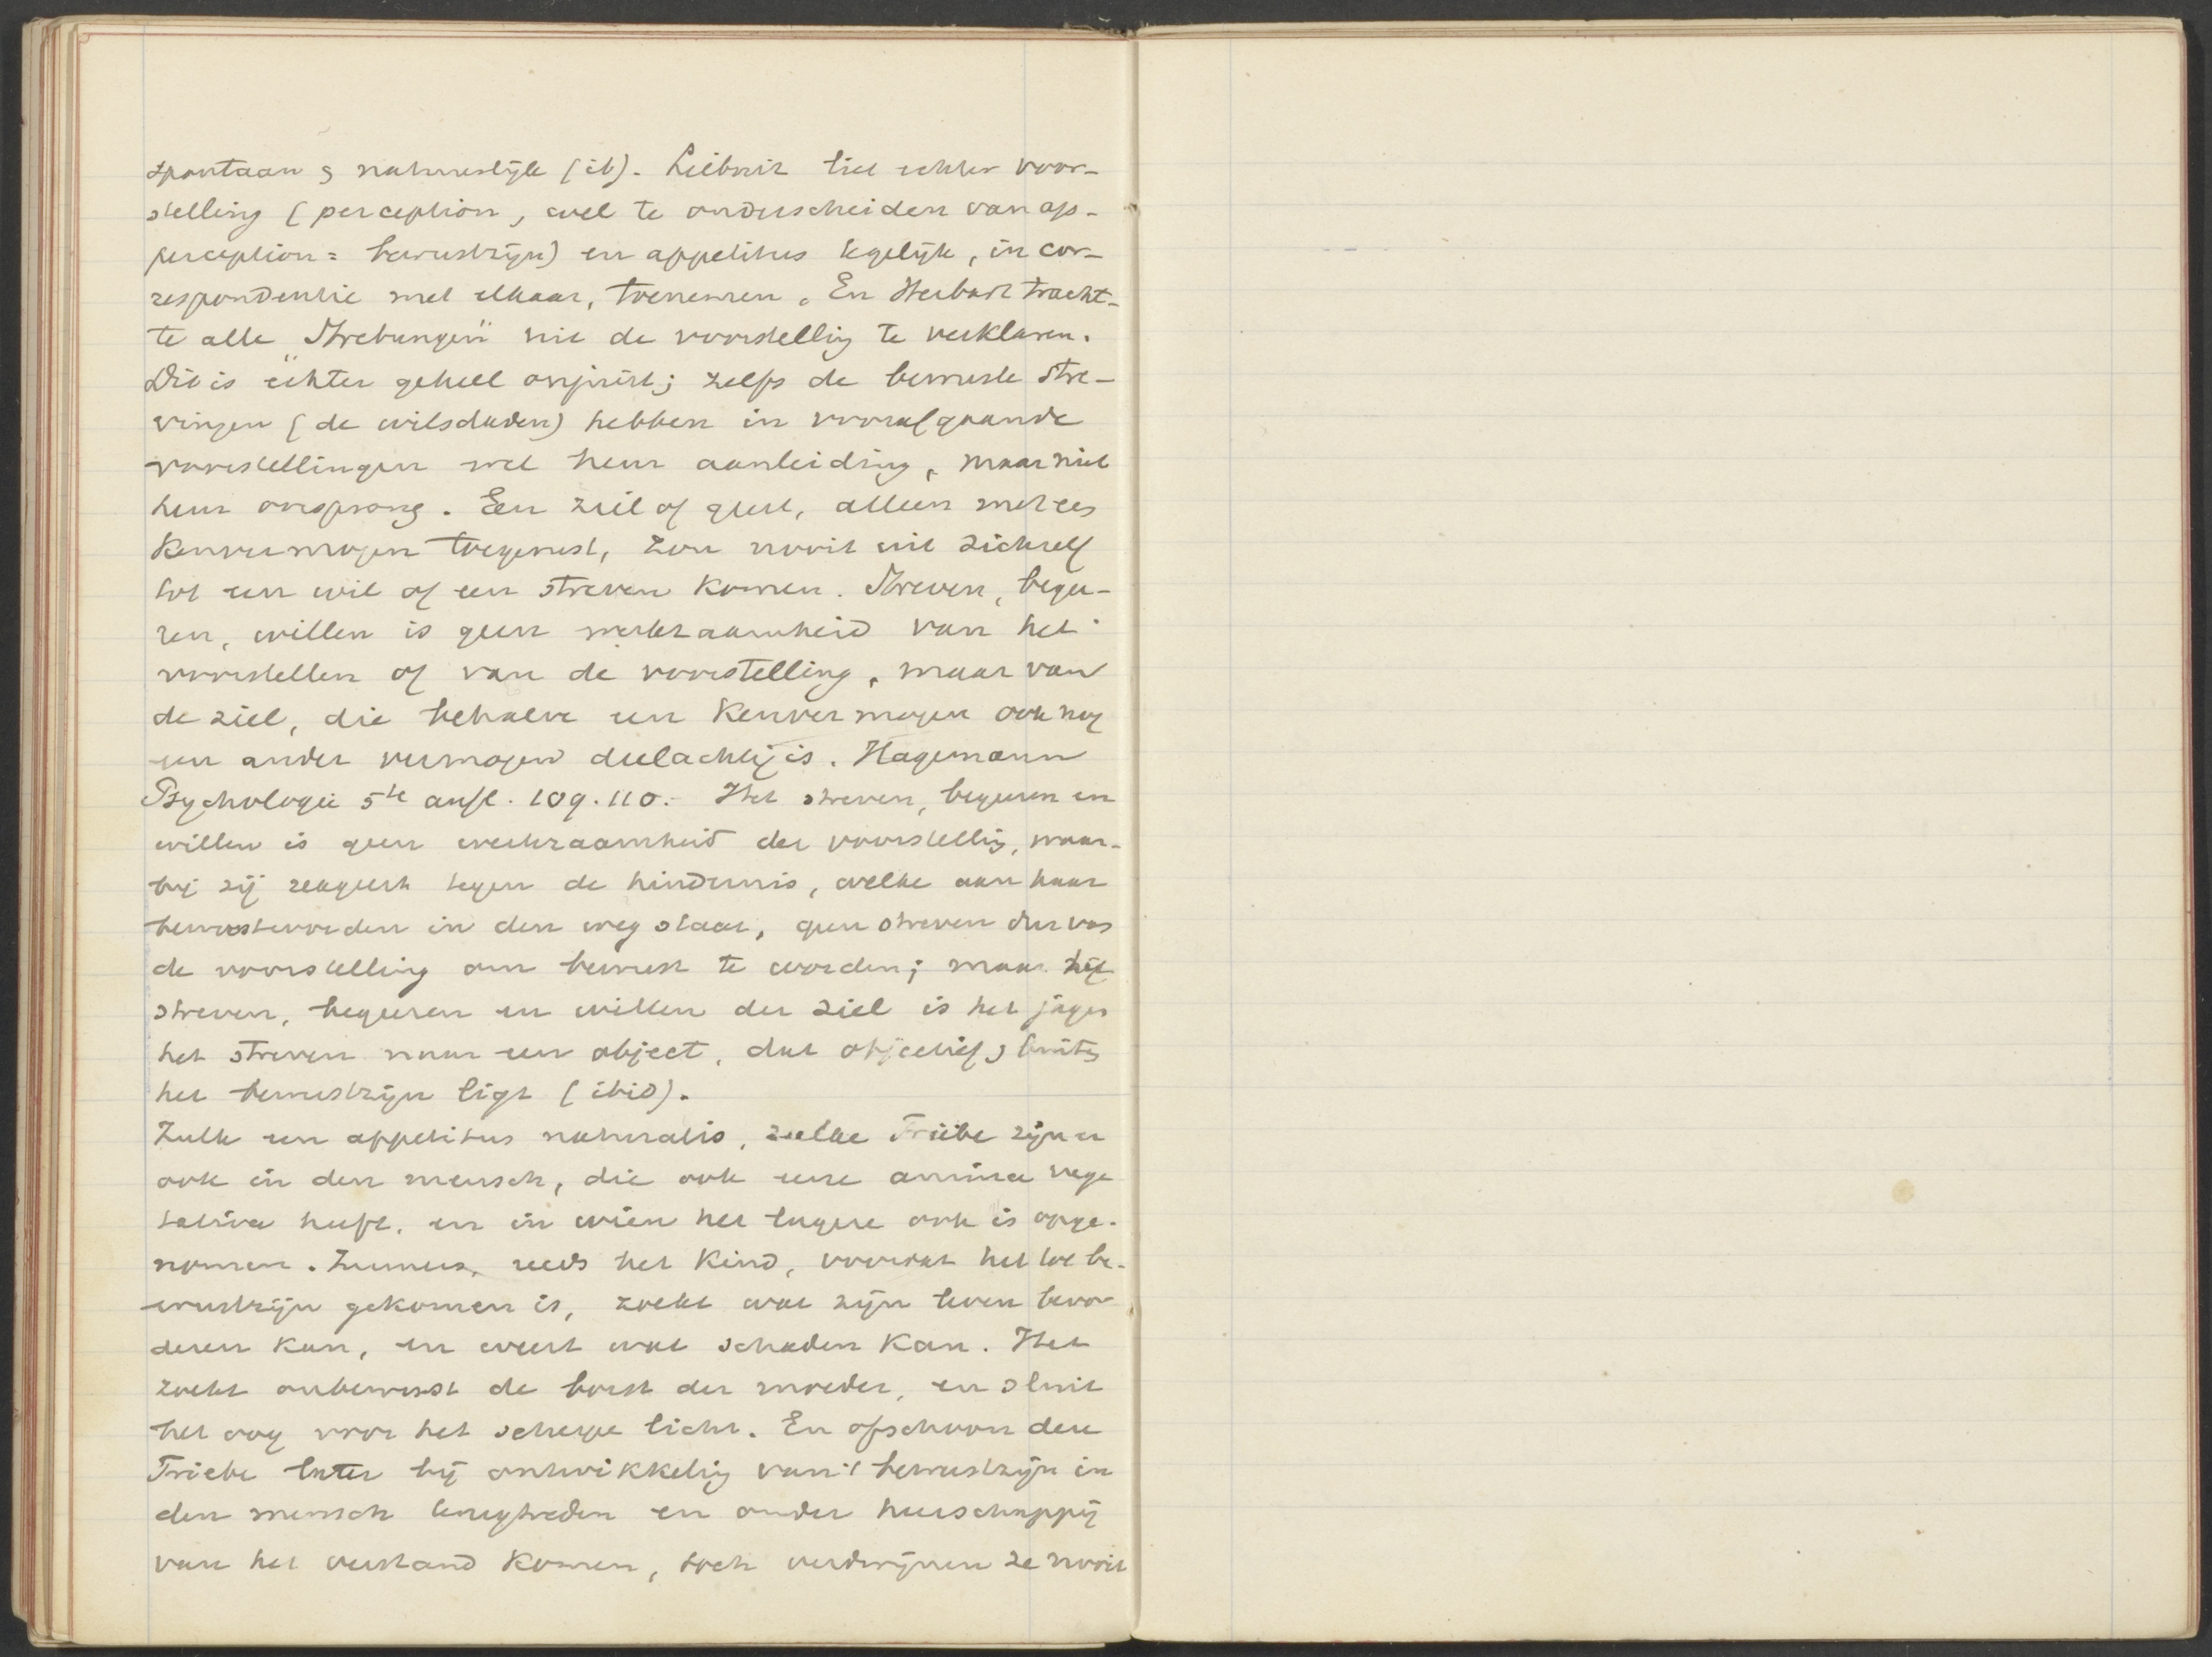 spontaan & natuurlijk (ib). Leibniz liet echter voor-
stelling (perception, wel te onderscheiden van ap-
perception = bewustzijn) en appetitus tegelijk, in cor-
respondentie met elkaar, toenemen. En Herbart tracht-
te alle „Strebungen" uit de voorstelling te verklaren.
Dit is echter geheel onjuist; zelfs de bewuste stre-
vingen (de wilsdaden) hebben in voorafgaande
voorstellingen wel hun aanleiding, maar niet
hun oorsprong. Een ziel of geest, alleen met een
kenvermogen toegerust, zou nooit uit zichzelf
tot een wil of een streven komen. Streven, begee-
ren, willen is geen werkzaamheid van het
voorstellen of van de voorstelling, maar van
de ziel, die behalve een kenvermogen ook nog
een ander vermogen deelachtig is. Hagemann
Psychologie 5te aufl. 109. 110. - Het streven, begeeren en
willen is geen werkzaamheid der voorstelling, waar-
bij zij reageert tegen de hindernis, welke aan haar
bewustworden in den weg staat, geen streven dus van
de voorstelling om bewust te worden; maar het
streven, begeeren en willen der ziel is het jagen
het streven naar een object, dat objectief, buiten
het bewustzijn ligt (ibid).
Zulk een appetitus naturalis, zulke Triebe zijn er
ook in den mensch, die ook eene anima vege
tativa heeft, en in wien het lagere ook is opge-
nomen. Immers, reeds het kind, voordat het tot be-
wustzijn gekomen is, zoekt wat zijn leven bevor
deren kan, en weert wat schaden kan. Het
zoekt onbewust de borst der moeder, en sluit
het oog voor het scherpe licht. En ofschoon deze
Triebe later bij ontwikkeling van 't bewustzijn in
den mensch terugtreden en onder heerschappij
van het verstand komen, toch verdwijnen ze nooit